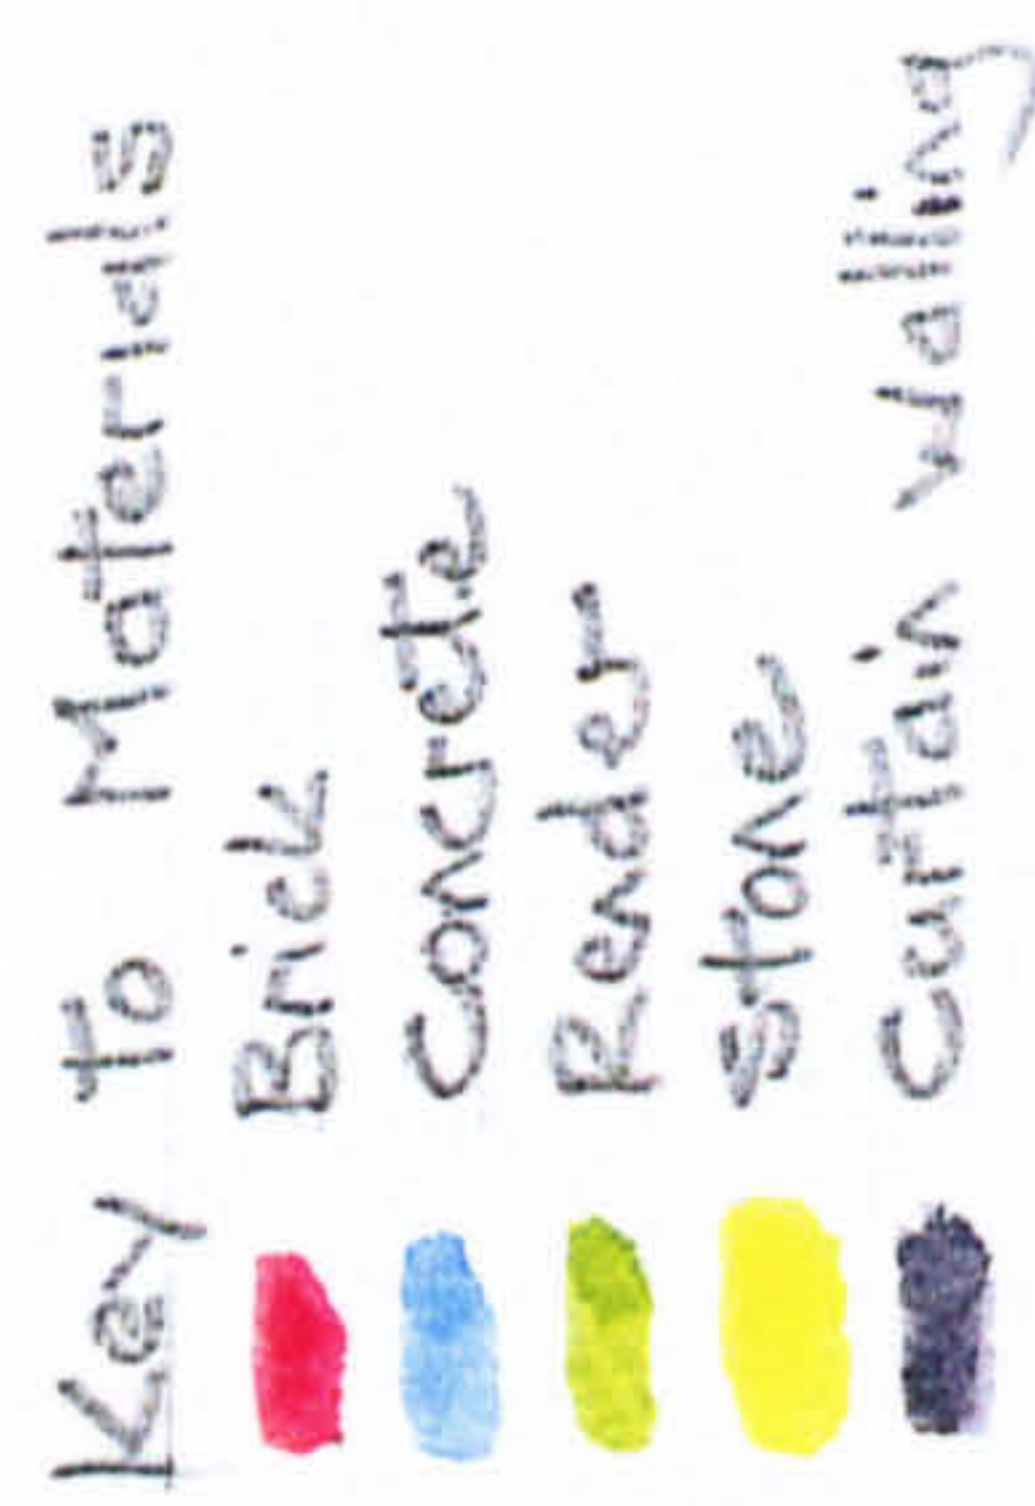 Key to Materials
Brick
Concrete
Render
Stone
Curtain walling